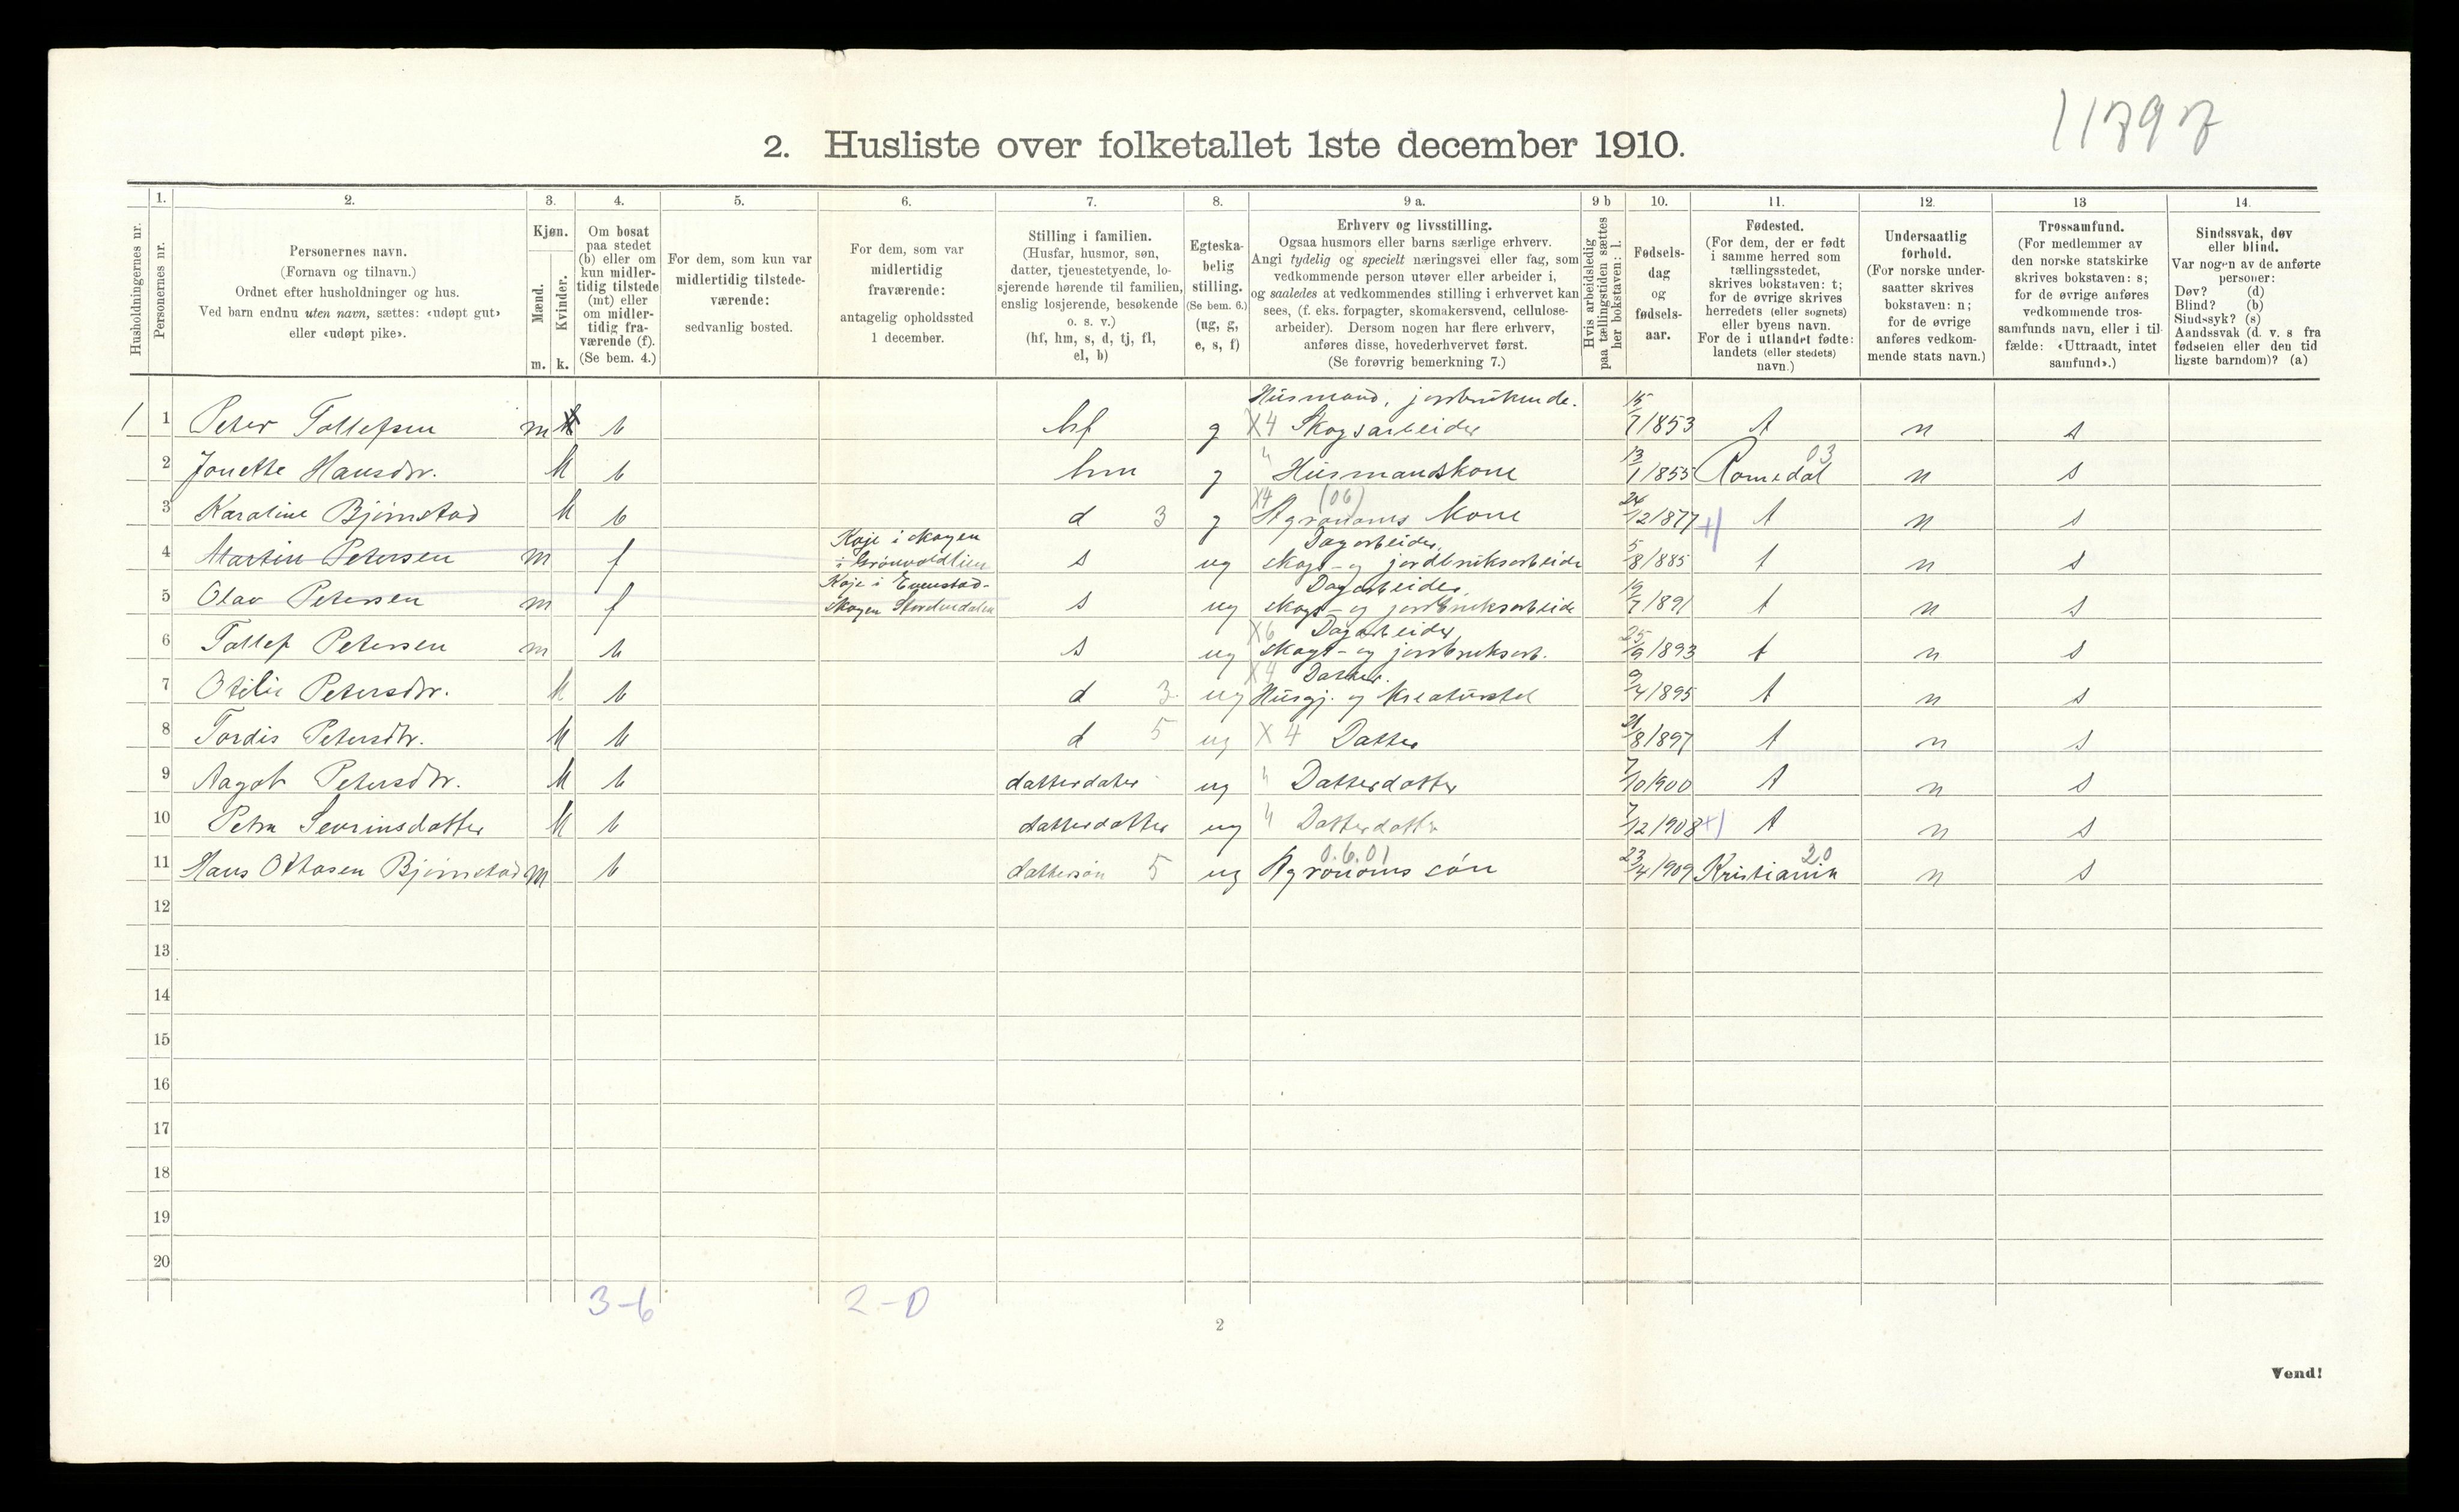 11797
2. Husliste over folketallet 1ste december 1910.
Husholdningernes nr.
1. Personernes nr.
2. Personernes navn. (Fornavn og tilnavn.) Ordnet efter husholdninger og hus. Ved barn endnu uten navn, sættes: «udøpt gut» eller «udøpt pike».
3. Kjøn. Mænd. m. Kvinder. k.
4. Om bosat paa stedet (b) eller om kun midlertidig tilstede (mt) eller om midlertidig fraværende (f). (Se bem. 4.)
5. For dem, som kun var midlertidig tilstedeværende: sedvanlig bosted.
6. For dem, som var midlertidig fraværende: antagelig opholdssted 1 december.
7. Stilling i familien. (Husfar, husmor, søn, datter, tjenestetyende, losjerende hørende til familien, enslig losjerende, besøkende o. s. v.) (hf, hm, s, d, tj, fl, el, b)
8. Egteskabelig stilling. (Se bem. 6.) (ug, g, e, s, f)
9 a. Erhverv og livsstilling. Ogsaa husmors eller barns særlige erhverv. Angi tydelig og specielt næringsvei eller fag, som vedkommende person utøver eller arbeider i, og saaledes at vedkommendes stilling i erhvervet kan sees, (f. eks. forpagter, skomakersvend, cellulosearbeider). Dersom nogen har flere erhverv, anføres disse, hovederhvervet først. (Se forøvrig bemerkning 7.)
9 b Hvis arbeidsledig paa tællingstiden sættes her bokstaven: l.
10. Fødselsdag og fødselsaar.
11. Fødested. (For dem, der er født i samme herred som tællingsstedet, skrives bokstaven: t; for de øvrige skrives herredets (eller sognets) eller byens navn. For de i utlandet fødte: landets (eller stedets) navn.)
12. Undersaatlig forhold. (For norske undersaatter skrives bokstaven: n; for de øvrige anføres vedkommende stats navn.)
13 Trossamfund. (For medlemmer av den norske statskirke skrives bokstaven: s; for de øvrige anføres vedkommende trossamfunds navn, eller i tilfælde: «Uttraadt, intet samfund».)
14. Sindssvak, døv eller blind. Var nogen av de anførte personer: Døv? (d) Blind? (b) Sindssyk? (s) Aandssvak (d. v. s fra fødselen eller den tidligste barndom)? (a)
1 1 Peter Tollefsen m b hf g Husmand, jordbrukende. X4 Skogsarbeider 15/7 1853 t n s
2 Jonette Hansdtr. k b hm g " Husmandskone 13/1 1855 Romedal 03 n s
3 Karoline Bjørnstad k b d 3 g X4 (06) Agronoms kone 24/12 1877 +) t n s
4 Martin Petersen m f Koje i skogen i Grønvoldlien s ug Dagarbeider, skogs- og jordbruksarbeide 5/8 1885 t n s
5 Olav Petersen m f Koje i Evenstadskogen Storelvdalen s ug Dagarbeider, skogs- og jordbruksarbeide 19/7 1891 t n s
6 Tollef Petersen m b s ug X6 Dagarbeider, skogs- og jordbruksarb. 25/9 1893 t n s
7 Otilie Petersdtr. k b d 3 ug X4 Datter. Husgj. og kreaturstel 9/4 1895 t n s
8 Tordis Petersdtr. k b d 5 ug X 4 Datter 21/8 1897 t n s
9 Aagot Petersdtr. k b datterdater ug " Datterdatter 7/10 1900 t n s
10 Petra Sevrinsdatter k b datterdatter ug " Datterdattr 7/12 1908 +) t n s
11 Hans Ottosen Bjørnstad m b dattersøn 5 ug 0.6.01 Agronoms søn 23/4 1909 Kristiania 20 n s
12
13
14
15
16
17
18
19
20
3-6 2-0
2
Vend!